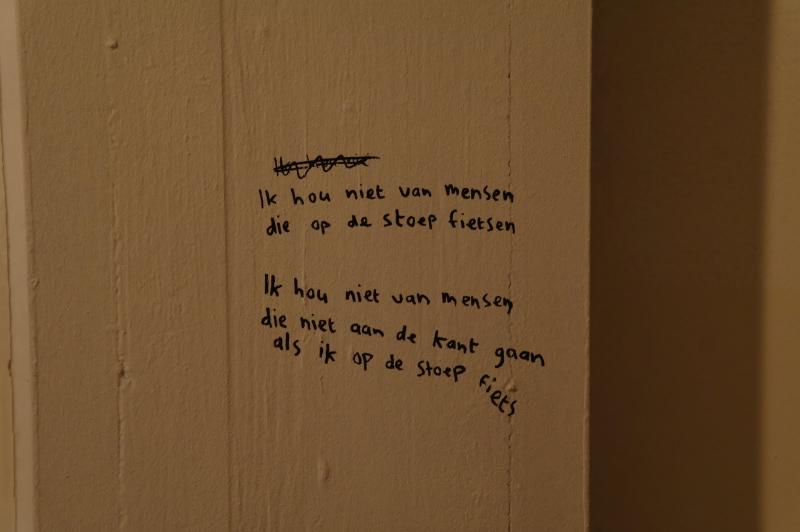 Ik hou niet van mensen
die op de stoep fietsen
Ik hou niet van mensen
die niet aan de kant gaan
als ik op de stoep fiets